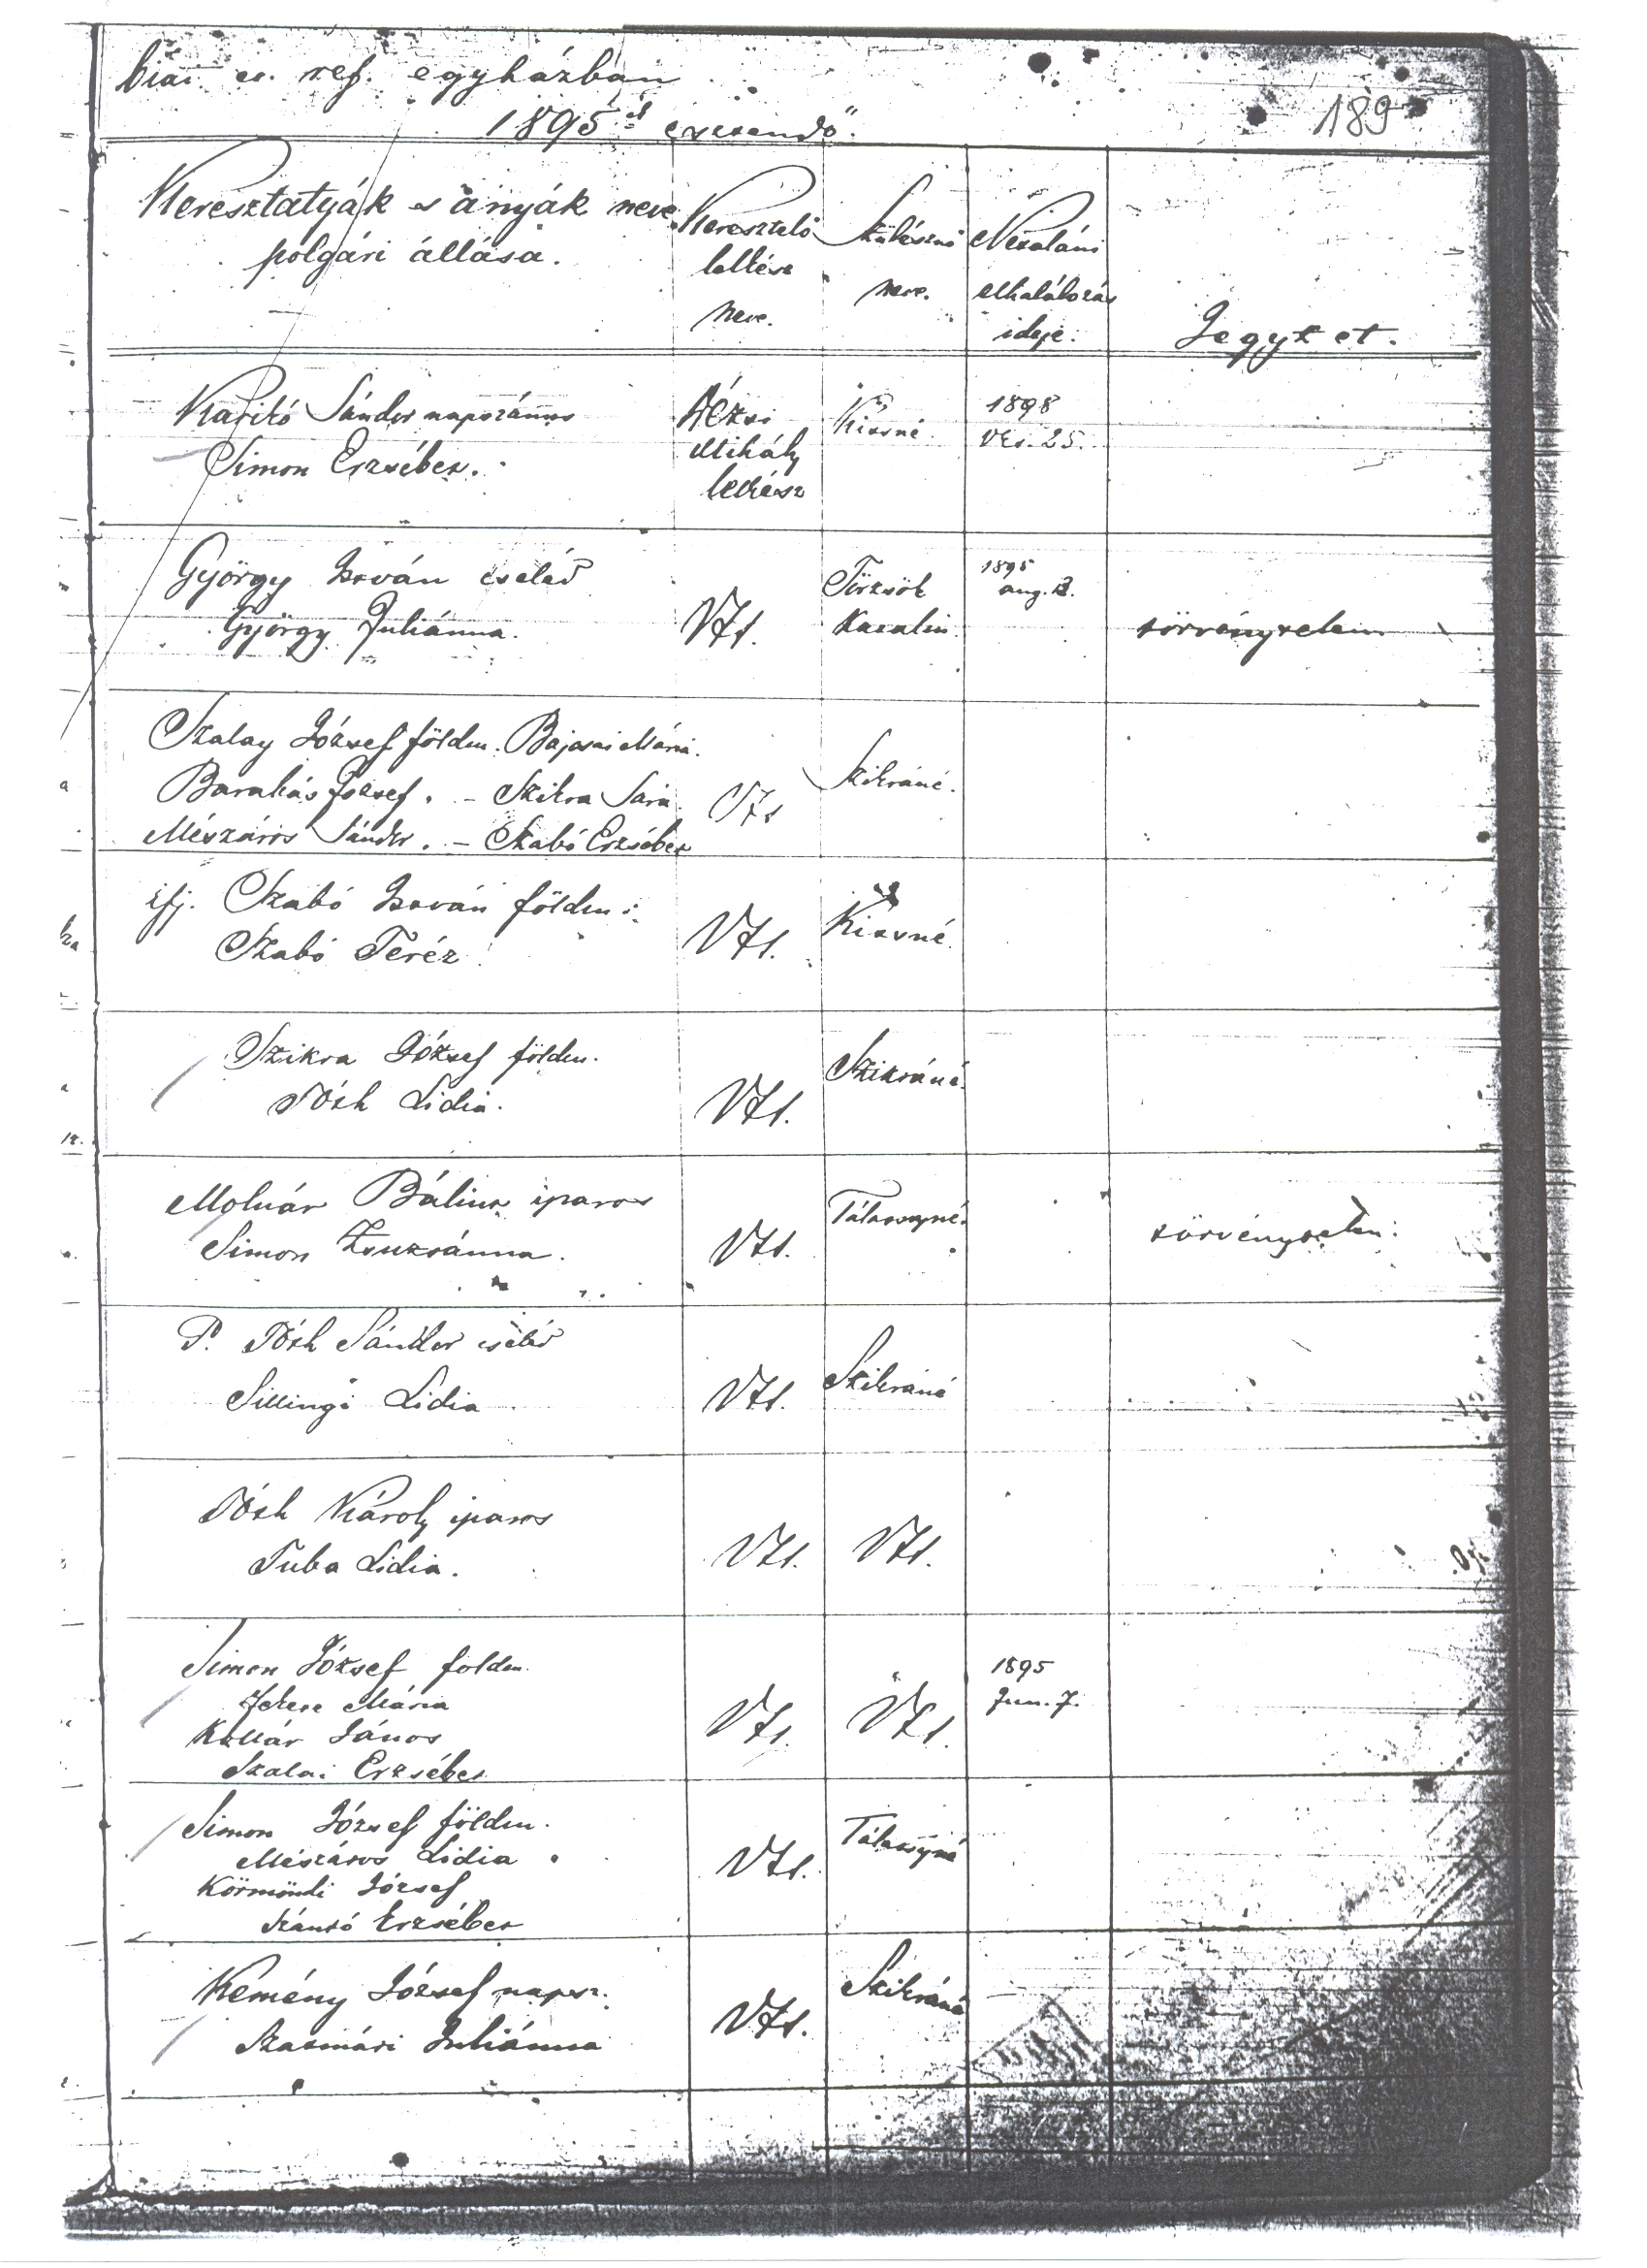 biai ev. ref. egyházban
1895ik esztendő.
189
Keresztatyák s anyák neve
polgári állása.
Keresztelő
lelkész
neve.
Szülésznő
neve.
Netaláni
elhalálozás
ideje.
Jegyzet.
Sándor napszámos
Simon Erzsébet.
Rézsi
Mihály
lelkész
Kissné
1898
VIII. 25.
György István cseléd
György Juliánna.
Vts.
Törzsök
Katalin
1895
aug. 2.
törvénytelen
Szalay József földm. Bajcsai Mária.
Barabás József. - Szikra Sára
Mészáros Sándor. - Szabó Erzsébet
Vts
Szikráné.
ifj. Szabó István földm:
Szabó Teréz
Vts.
Kissné
Szikra József földm.
Tóth Lidia.
Vts.
Szikráné.
Molnár Bálint iparos
Simon Zsuzsánna.
Vts.
Tálasnyné.
törvénytelen.
P. Tóth Sándor cseléd
Sillingi Lidia
Vts.
Szikráné
Tóth Károly iparos
Tuba Lidia.
Vts.
Vts.
Simon József földm.
Fekete Mária
Kollár János
Szalai Erzsébet
Vts.
Vts.
1895
Jun. 7.
Simon József földm.
Mészáros Lidia
Körmöndi József
Szántó Erzsébet
Vts.
Tálasnyné
Kemény József napsz.
Szatmári Juliánna
Vts.
Szikráné